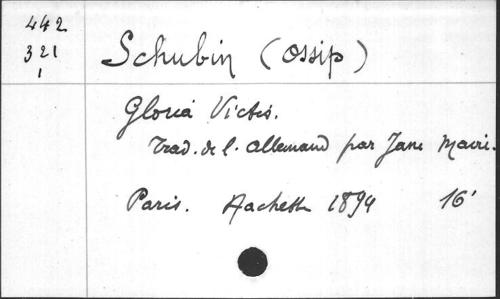 442
321
1
Schubin (Ossip)
Gloria Victis.
Trad. de l. allemand par Jane Mairi.
Paris. Hachette 1894 16'